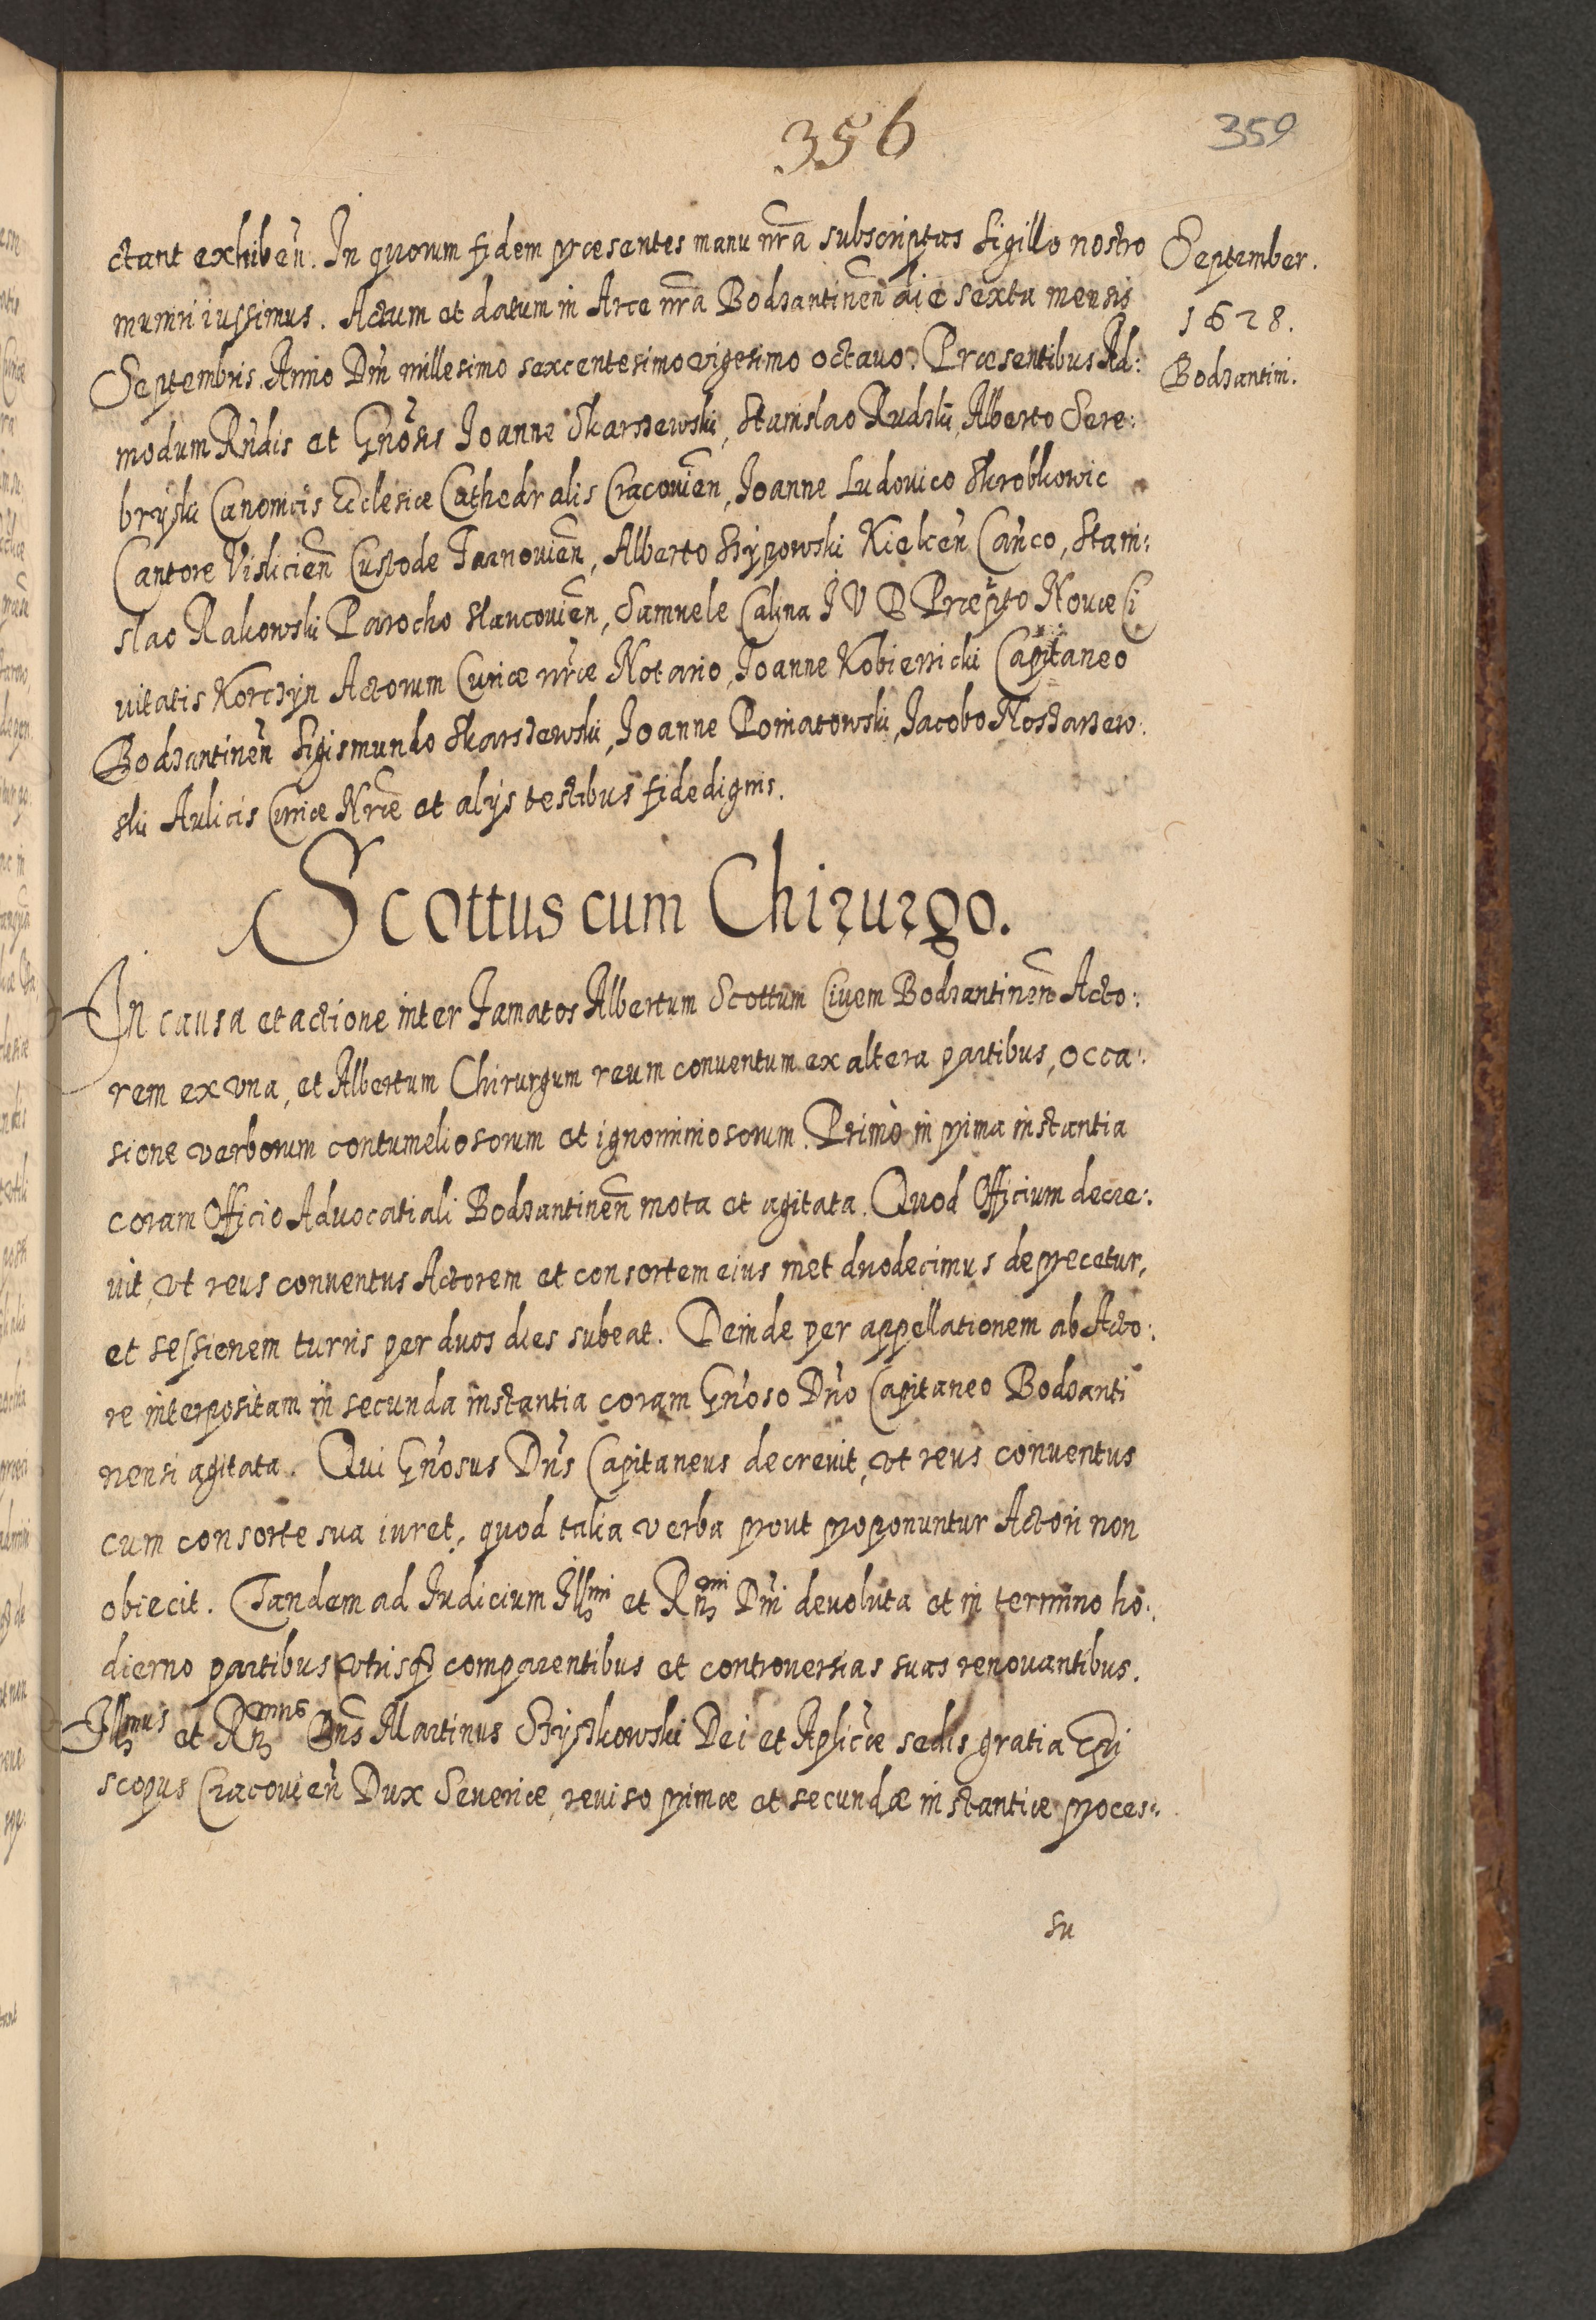 356
359
September.
1628.
Bodzantini.
ctant exhibeñ. In quorum fidem præsentes manu nr̃a subscriptas sigillo nostro
muniri iussimus. Actum et datum in Arce nr̃a Bodzantineñ die sexta mensis
Septembris Anno Dñi millesimo sexcentesimo vigesimo octauo. Præsentibus Ad:
modum Rñdis et Gñosis Joanne Skarszewski, Stanislao Rudzki, Alberto Sere:
bryski Canonicis Ecclesiæ Cathedralis Cracouieñ, Joanne Ludouico Skrobkowic
Cantore Visliciен̃ Custode Tarnouieñ, Alberto Strypowski Kielceñ Cañco, Stani:
slao Rakowski Parocho Slaucouieñ, Samuele Calina I V D Præp̃to Nouæ Ci
uitatis Korczyn Actorum Curiæ nr̃æ Notario, Joanne Kobierzicki Capitaneo
Bodzantineñ Sigismundo Skarszewski, Joanne Poniatowski, Jacobo Mostarzew:
ski Aulicis Curiæ Nr̃æ et alijs testibus fidedignis.
Scottus cum Chirurgo.
In causa et actione inter Famatos Albertum Scottum Ciuem Bodzantineñ Acto:
rem ex vna, et Albertum Chirurgum reum conuentum ex altera partibus, occa:
sione verborum contumeliosorum et ignominiosorum. Primò in prima instantia
coram Officio Aduocatiali Bodzantineñ mota et agitata. Quod Officium decre:
uit, vt reus conuentus Actorem et consortem eius met duodecimus deprecetur,
et sessionem turris per duos dies subeat. Deinde per appellationem ab Acto:
re interpositam in secunda instantia coram Gñoso Dño Capitaneo Bodzanti
nensi agitata. Qui Gñosus Dñs Capitaneus decreuit, vt reus conuentus
cum consorte sua iuret, quod talia verba prout proponuntur Actori non
obiecit. Tandem ad Iudicium Illmi et Rñmi Dñi deuoluta et in termino ho:
dierno partibus vtrisq́ comparentibus et controuersias suas renouantibus.
Illmus et Rñmus Dñs Martinus Szyszkowski Dei et Aplicæ sedis gratia Epi
scopus Cracouieñ Dux Seueriæ, reuiso primæ et secundæ instantiæ proces:
su